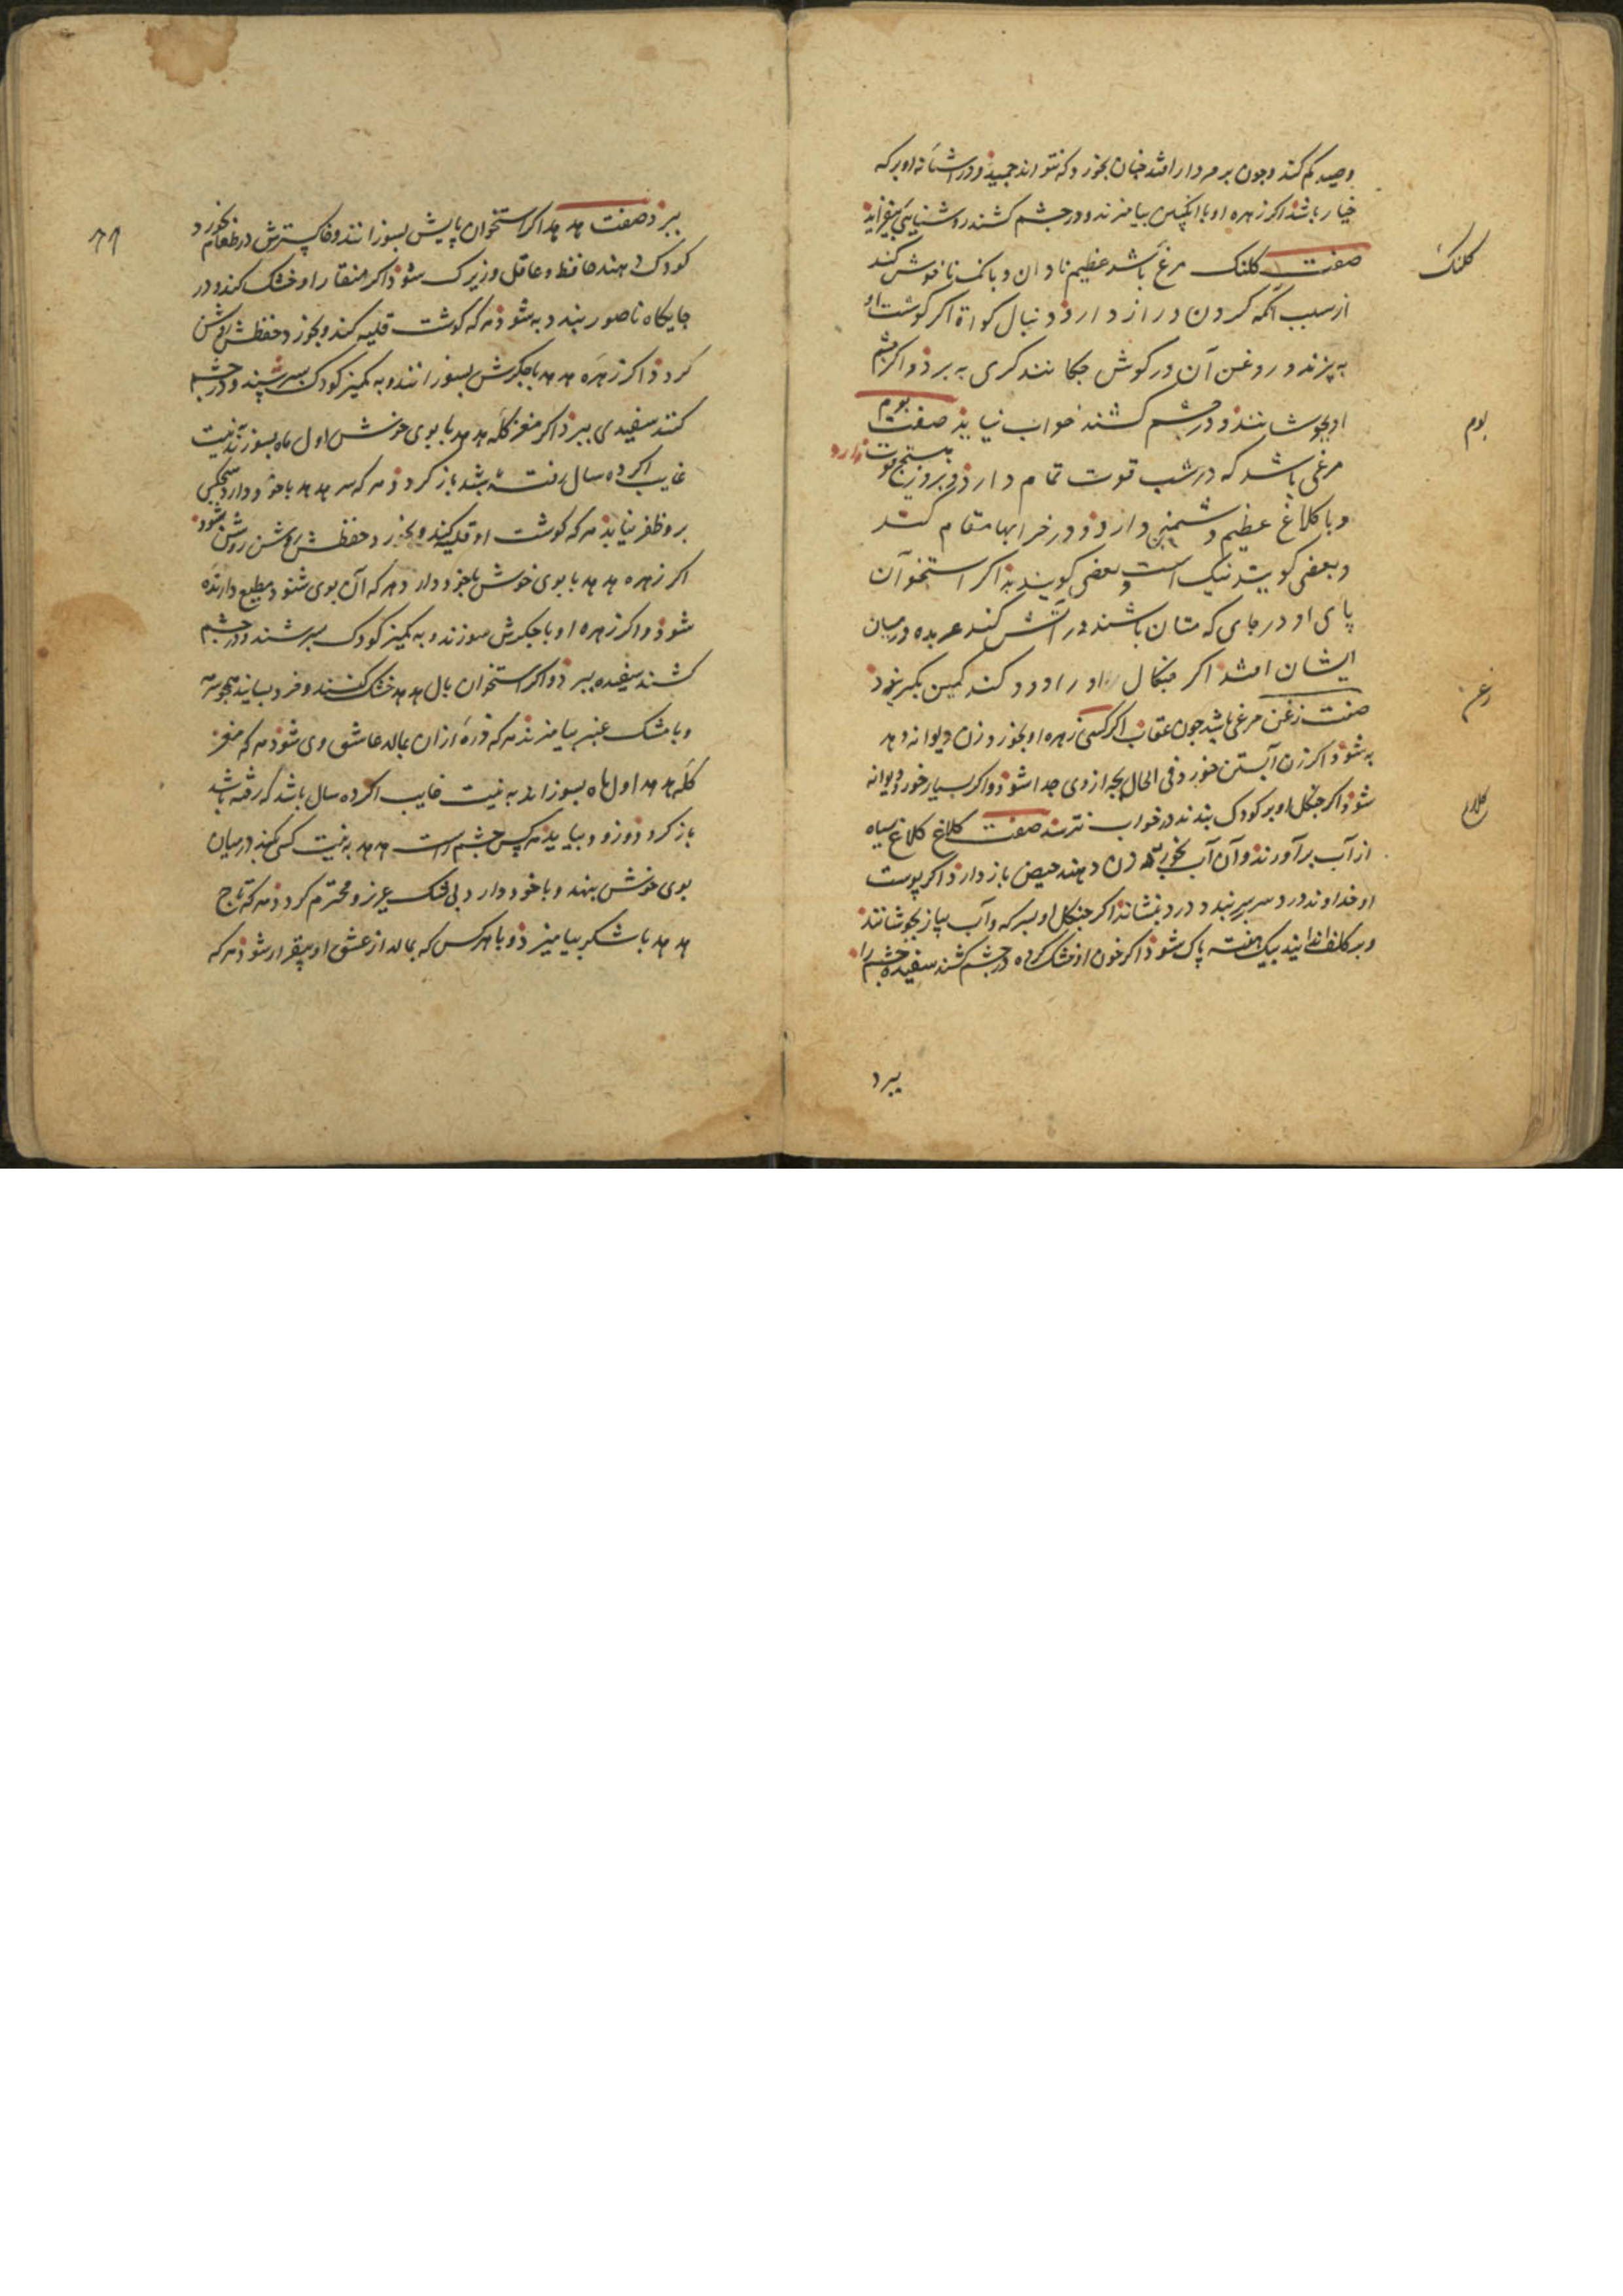 وصید کم کند و چون بر مردار افتد چنان بخورد که نتواند جنبید و در آشیانه او برگ
خیار باشد اگر زهره او با انگبین بیامیزند و در چشم کشند روشنایی بیفزاید
صفت کلنک مرغی باشد عظیم نادان و بانک ناخوش کند
کلنک
از سبب آنکه کردن دراز دارد و دنبال کوتاه اکر کوشت او
به پزند و روغن آن در کوش چکانند کری به برد و اکر چشم
او بجوشانند و در چشم کشند خواب نیاید صفت بوم
بوم
مرغی باشد که در شب قوت تمام دارد و بروز هیچ قوت ندارد
و با کلاغ عظیم دشمنی دارد و در خرابها مقام کند
و بعضی کویند نیک است و بعضی کویند بد اکر استخوان
پای او در جای که مستان باشند در آتش کند عربده در میان
ایشان افتد اکر چنکال او را دود کند کمین بکریزد
صفت زغن مرغی باشد چون عقاب اکر کسی زهره او بخورد زن دیوانه دهد
زغن
به شود و اکر زن آبستن خورد فی الحال بچه از وی جدا شود و اکر بسیار خورد دیوانه
شود اکر چنکل او بر کودک بندند در خواب نترسد صفت کلاغ کلاغ سیاه
کلاغ
از آب برآورند و آن آب بخورد زن دهند حیض باز دارد اکر پوست
او خداوند درد سر بر سر بندد درد بنشاند اکر چنکل او بسرکه و آب پیاز بجوشانند
و بر کلف مالند بیک هفته پاک شود اکر خون او خشک کرده در چشم کشند سفیده چشم را
ببرد
ببرد صفت هدهد اکر استخوان پایش بسوزانند و خاکسترش در طعام بخورد
۶۶
کودک دهند حافظ و عاقل و زیرک شود اکر منقار او خشک کند و در
جایکاه ناصور بندد به شود هر که کوشت قلیه کند و بخورد حفظش روشن
کردد اکر زهره هدهد با جکرش بسوزانند و به کمیز کودک بسرشند و در چشم
کنند سفیدی ببرد اکر مغز کله هدهد با بوی خوش اول ماه بسوزند به نیت
غایب اکر ده سال رفته باشد باز کردد هر که سر هدهد با خود دارد هیچکس
برو ظفر نیابد هر که کوشت او قلیه کند و بخورد حفظش روشن شود
اکر زهره هدهد با بوی خوش با خود دارد هر که آن بوی شنود مطیع دارنده
شود و اکر زهره او با جکرش سوزند و به کمیز کودک بسرشند و در چشم
کشند سفیده ببرد و اکر استخوان بال هدهد خشک کنند و خرد بسایند همچو سرمه
و با مشک و عنبر بیامیزند هر که ذره از آن بمالد عاشق وی شود هر که مغز
کله هدهد اول ماه بسوزاند به نیت غایب اکر ده سال باشد که رفته باشد
باز کردد زود و بیاید هر کس چشم راست هدهد به نیت کسی نهد در میان
بوی خوش بنهد و با خود دارد بی شک عزیز و محترم کردد هر که تاج
هدهد با شکر بیامیزد و با هر کس که بمالد از عشق او بیقرار شود هر که